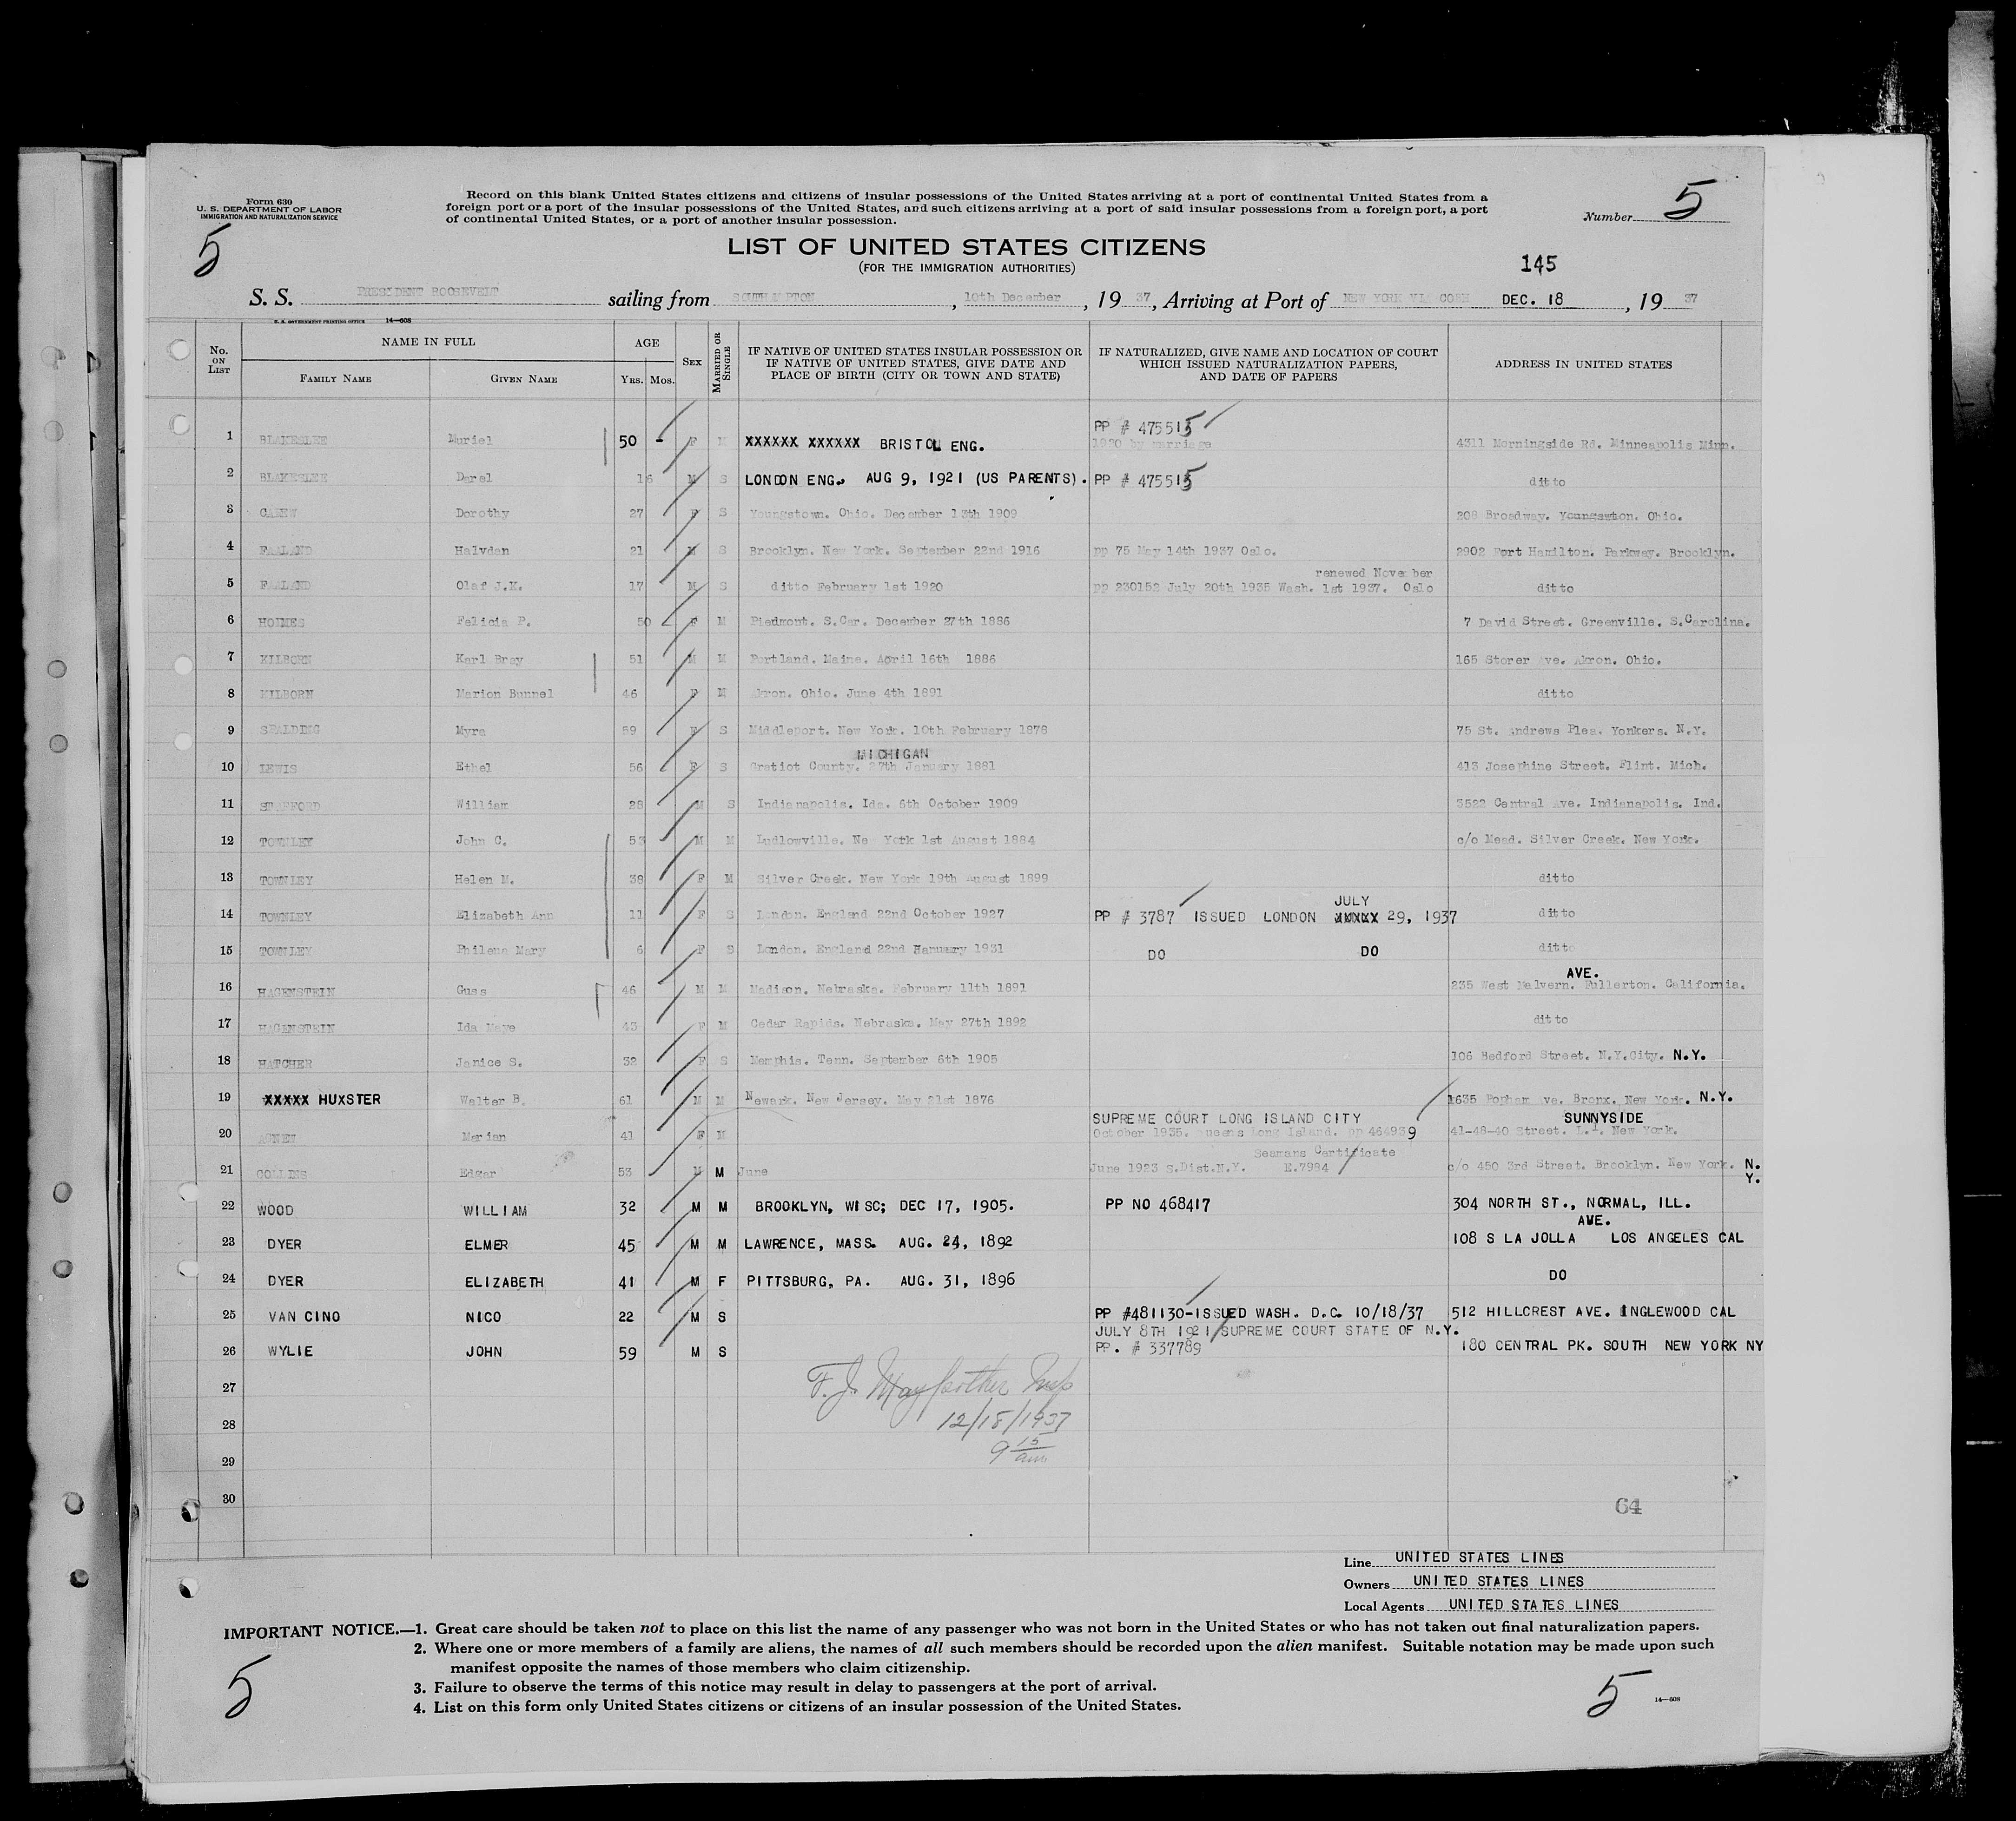 Form 630
U. S. DEPARTMENT OF LABOR
IMMIGRATION AND NATURALIZATION SERVICE
Record on this blank United States citizens and citizens of insular possessions of the United States arriving at a port of continental United States from a
foreign port or a port of the insular possessions of the United States, and such citizens arriving at a port of said insular possessions from a foreign port, a port
of continental United States, or a port of another insular possession.
Number 5
5
LIST OF UNITED STATES CITIZENS
(FOR THE IMMIGRATION AUTHORITIES)
145
S. S. PRESIDENT ROOSEVELT sailing from SOUTHAMPTON, 10th December, 19 37, Arriving at Port of NEW YORK VIA COBH DEC. 18, 19 37
U. S. GOVERNMENT PRINTING OFFICE 14—608
No. ON LIST
NAME IN FULL
FAMILY NAME
GIVEN NAME
AGE
YRS. MOS.
SEX
MARRIED OR SINGLE
IF NATIVE OF UNITED STATES INSULAR POSSESSION OR
IF NATIVE OF UNITED STATES, GIVE DATE AND
PLACE OF BIRTH (CITY OR TOWN AND STATE)
IF NATURALIZED, GIVE NAME AND LOCATION OF COURT
WHICH ISSUED NATURALIZATION PAPERS,
AND DATE OF PAPERS
ADDRESS IN UNITED STATES
PP # 475515
1 BLAKESLEE Muriel 50 - F M XXXXXX XXXXXX BRISTOL ENG. 1920 by marriage 4311 Morningside Rd. Minneapolis Minn.
2 BLAKESLEE Derel 16 M S LONDON ENG. AUG 9, 1921 (US PARENTS). PP # 475515 ditto
3 CAREW Dorothy 27 F S Youngstown. Ohio. December 13th 1909 208 Broadway. Youngston. Ohio.
4 FAALAND Halvdan 21 M S Brooklyn. New York. September 22nd 1916 pp 75 May 14th 1937 Oslo. 2902 Fort Hamilton. Parkway. Brooklyn.
renewed November
5 FAALAND Olaf J.K. 17 M S ditto February 1st 1920 pp 230152 July 20th 1935 Wash. 1st 1937. Oslo ditto
6 HOLMES Felicia P. 50 F M Piedmont. S.Car. December 27th 1886 7 David Street. Greenville. S.Carolina.
7 KILBORN Karl Bray 51 M M Portland. Maine. April 16th 1886 165 Storer Ave. Akron. Ohio.
8 KILBORN Marion Bunnel 46 F M Akron. Ohio. June 4th 1891 ditto
9 SPALDING Myra 59 F S Middleport. New York. 10th February 1878 75 St. Andrews Plea. Yonkers. N.Y.
MICHIGAN
10 LEWIS Ethel 56 F S Gratiot County. 27th January 1881 413 Josephine Street. Flint. Mich.
11 STAFFORD William 28 M S Indianapolis. Ida. 6th October 1909 3522 Central Ave. Indianapolis. Ind.
12 TOWNLEY John C. 53 M M Ludlowville. Ne York 1st August 1884 c/o Mead. Silver Creek. New York.
13 TOWNLEY Helen M. 38 F M Silver Creek. New York 19th August 1899 ditto
JULY
14 TOWNLEY Elizabeth Ann 11 F S London. England 22nd October 1927 PP # 3787 ISSUED LONDON XXXXX 29, 1937 ditto
15 TOWNLEY Philena Mary 6 F S London. England 22nd January 1931 DO DO ditto
AVE.
16 HAGENSTEIN Guss 46 M M Madison. Nebraska. February 11th 1891 235 West Malvern. Fullerton. California.
17 HAGENSTEIN Ida Maye 45 F M Cedar Rapids. Nebraska. May 27th 1892 ditto
18 HATCHER Janice S. 32 F S Memphis. Tenn. September 6th 1905 106 Bedford Street. N.Y.City. N.Y.
19 XXXXX HUXSTER Walter B. 61 M M Newark. New Jersey. May 21st 1876 1635 Popham Ave. Bronx. New York. N.Y.
SUPREME COURT LONG ISLAND CITY SUNNYSIDE
20 Marian 41 F M October 1935. Queens Long Island. pp 464939 41-48-40 Street. L.I. New York.
Seamans Certificate
21 COLLINS Edgar 53 M M June June 1923 S.Dist.N.Y. E.7984 c/o 450 3rd Street. Brooklyn. New York. N.
Y.
22 WOOD WILLIAM 32 M M BROOKLYN, WISC; DEC 17, 1905. PP NO 468417 304 NORTH ST., NORMAL, ILL.
AVE.
23 DYER ELMER 45 M M LAWRENCE, MASS. AUG. 24, 1892 108 S LA JOLLA LOS ANGELES CAL
24 DYER ELIZABETH 41 M F PITTSBURG, PA. AUG. 31, 1896 DO
25 VAN CINO NICO 22 M S PP #481130-ISSUED WASH. D.C. 10/18/37 512 HILLCREST AVE. INGLEWOOD CAL
JULY 8TH 1921 SUPREME COURT STATE OF N.Y.
26 WYLIE JOHN 59 M S PP. # 337789 180 CENTRAL PK. SOUTH NEW YORK NY
27
F. J. Insp
28
12/18/1937
29
9 15 am
30
64
Line UNITED STATES LINES
Owners UNITED STATES LINES
Local Agents UNITED STATES LINES
IMPORTANT NOTICE.—1. Great care should be taken not to place on this list the name of any passenger who was not born in the United States or who has not taken out final naturalization papers.
2. Where one or more members of a family are aliens, the names of all such members should be recorded upon the alien manifest. Suitable notation may be made upon such
manifest opposite the names of those members who claim citizenship.
3. Failure to observe the terms of this notice may result in delay to passengers at the port of arrival.
4. List on this form only United States citizens or citizens of an insular possession of the United States.
5
5
14—608